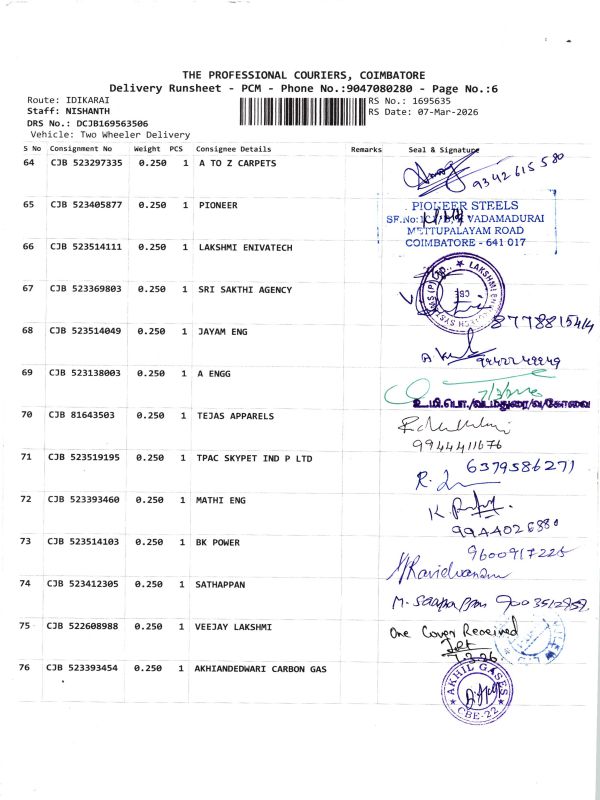 THE PROFESSIONAL COURIERS, COIMBATORE
Delivery Runsheet - PCM - Phone No.:9047080280 - Page No.:6
Route: IDIKARAI
RS No.: 1695635
Staff: NISHANTH
RS Date: 07-Mar-2026
DRS No.: DCJB169563506
Vehicle: Two Wheeler Delivery
S No Consignment No Weight PCS Consignee Details Remarks Seal & Signature
64 CJB 523297335 0.250 1 A TO Z CARPETS
9342615580
65 CJB 523405877 0.250 1 PIONEER
PIONEER STEELS
SF.No: VADAMADURAI
METTUPALAYAM ROAD
COIMBATORE - 641 017
66 CJB 523514111 0.250 1 LAKSHMI ENIVATECH
67 CJB 523369803 0.250 1 SRI SAKTHI AGENCY
LAKSHMI
CBE
8778815414
68 CJB 523514049 0.250 1 JAYAM ENG
9442249949
69 CJB 523138003 0.250 1 A ENGG
7/3/2026
உ.மி.பொ./வடமதுரை/வ/கோவை
70 CJB 81643503 0.250 1 TEJAS APPARELS
9944411676
71 CJB 523519195 0.250 1 TPAC SKYPET IND P LTD
6379586271
72 CJB 523393460 0.250 1 MATHI ENG
9944026880
73 CJB 523514103 0.250 1 BK POWER
9600917225
74 CJB 523412305 0.250 1 SATHAPPAN
9003512959
75 CJB 522608988 0.250 1 VEEJAY LAKSHMI
One Cover Received
7.3.26
76 CJB 523393454 0.250 1 AKHIANDEDWARI CARBON GAS
AKHIL GASES
CBE-22